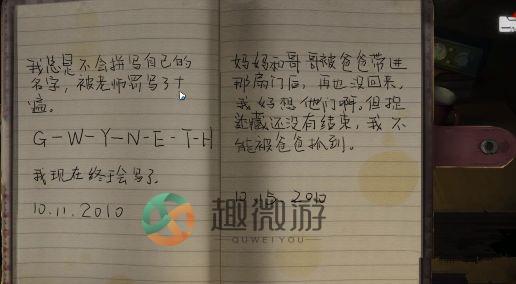 我总是不会拼写自己的
名字，被老师罚写了十
遍。
G-W-Y-N-E-T-H
我现在终于会写了。
10.11.2010
妈妈和哥哥被爸爸带进
那扇门后，再也没回来，
我好想他们啊。但捉
迷藏还没有结束，我不
能被爸爸抓到。
10.15.2010
趣微游
QUWEIYOU